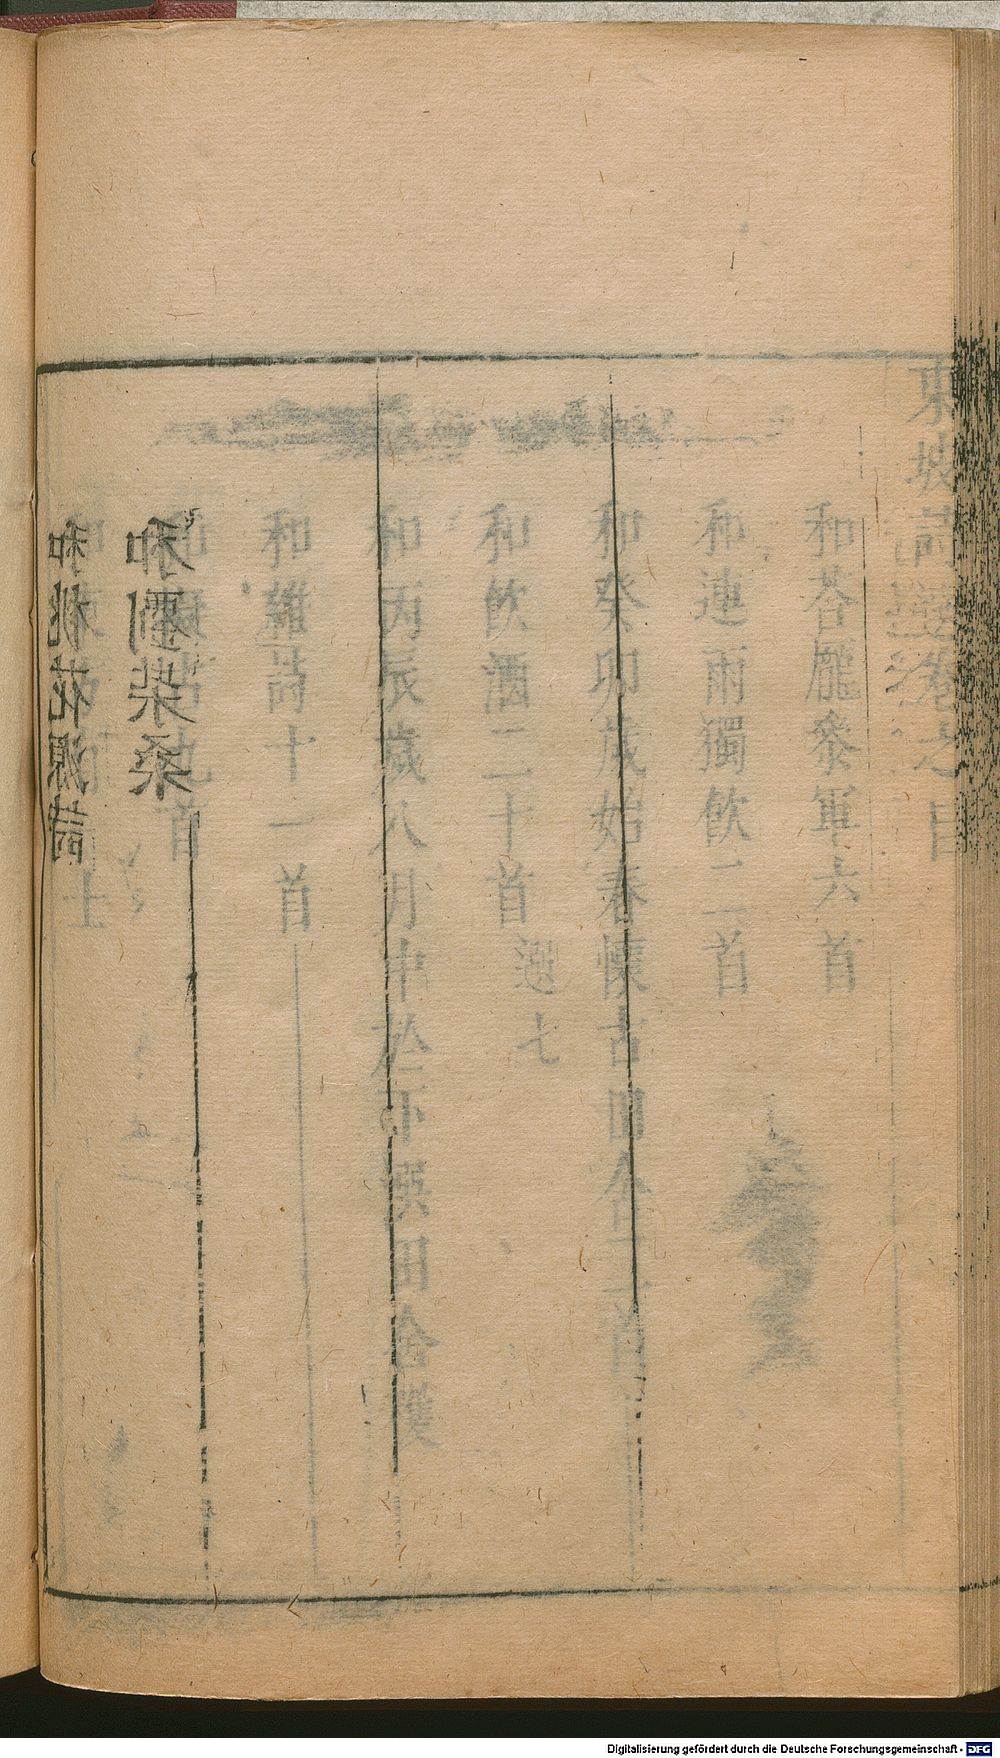 東坡詩選卷之目
和荅龐參軍六首
和連雨獨飲二首
和癸卯歲始春懷古田舍二首
和飲酒二十首
選七
和丙辰歲八月中於下潠田舍穫
和雜詩十一首
和劉柴桑
和桃花源詩
Digitalisierung gefördert durch die Deutsche Forschungsgemeinschaft - DFG